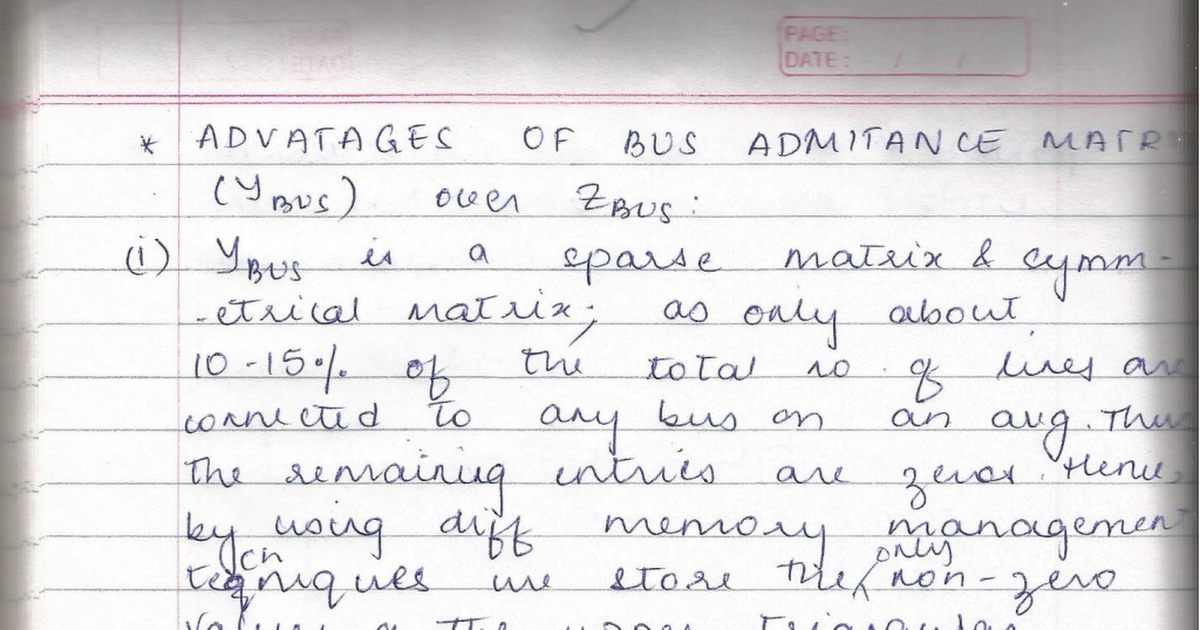 PAGE:
DATE: / /
* ADVATAGES OF BUS ADMITANCE MATR
(Y BUS) over Z BUS:
(i) Y BUS is a sparse matrix & symm-
-etrical matrix; as only about
10-15% of the total no. of lines are
connected to any bus on an avg. Thus
the remaining entries are zeros. Hence,
by using diff memory management
only
techniques we store the non-zero
values & the upper triangular